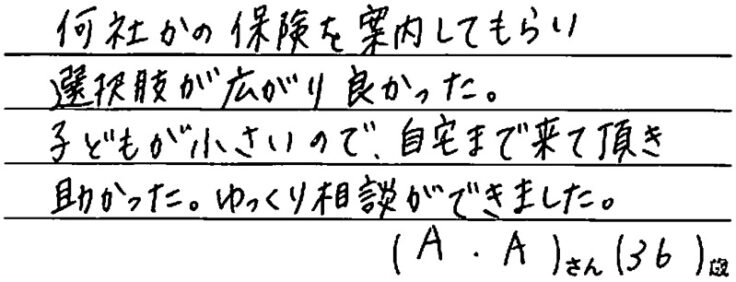 何社かの保険を案内してもらい
選択肢が広がり良かった。
子どもが小さいので、自宅まで来て頂き
助かった。ゆっくり相談ができました。
(A.A)さん(36)歳